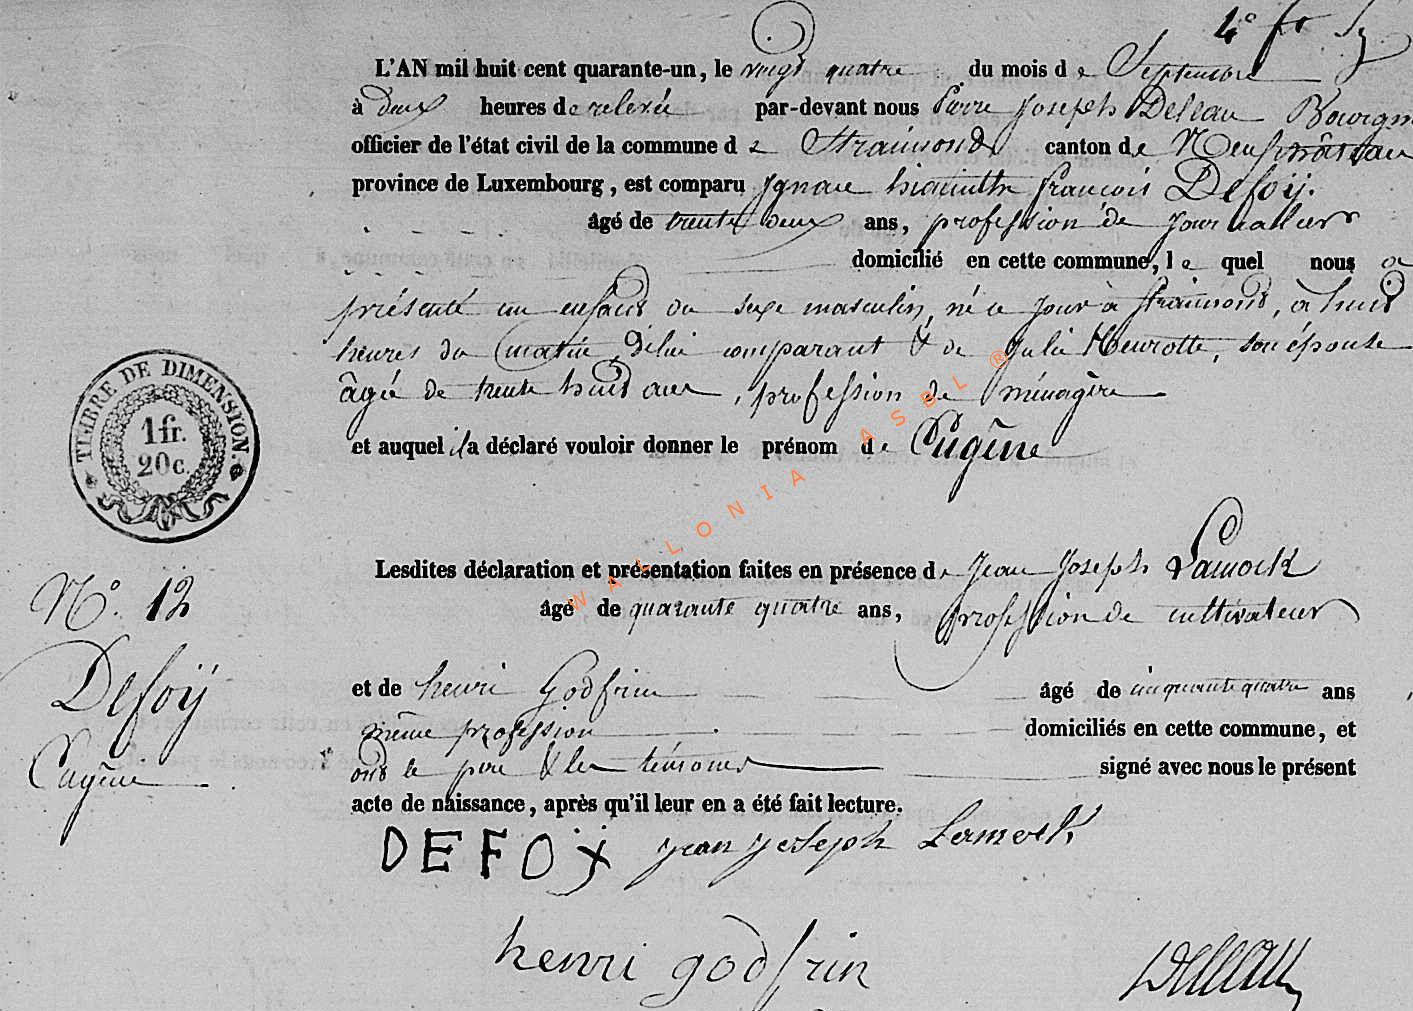 4e
L'AN mil huit cent quarante-un, le vingt quatre du mois de Septembre
à deux heures de relevée par-devant nous Pierre Joseph Delleau Bourgm
officier de l'état civil de la commune de Straimond canton de Neufchâteau
province de Luxembourg, est comparu Ignace hiacinthe françois Defoij.
âgé de trente deux ans, profession de journalier
domicilié en cette commune, le quel nous a
présenté un enfant du sexe masculin, né ce jour à straimond, à huit
heures du matin, de lui comparant & de Julie Henrotte, son épouse
âgée de trente huit ans, profession de ménagère
et auquel il a déclaré vouloir donner le prénom de Eugène
TIMBRE DE DIMENSION.
1 fr.
20 c.
WALLONIA ASBL ®
Lesdites déclaration et présentation faites en présence de Jean Joseph Lamock
N° 12
âgé de quarante quatre ans, profession de cultivateur
Defoij
Eugène
et de henri Godfrin âgé de cinquante quatre ans
même profession domiciliés en cette commune, et
ont le père & les témoins signé avec nous le présent
acte de naissance, après qu'il leur en a été fait lecture.
DEFOY jean joseph Lamock
henri godfrin
Delleau